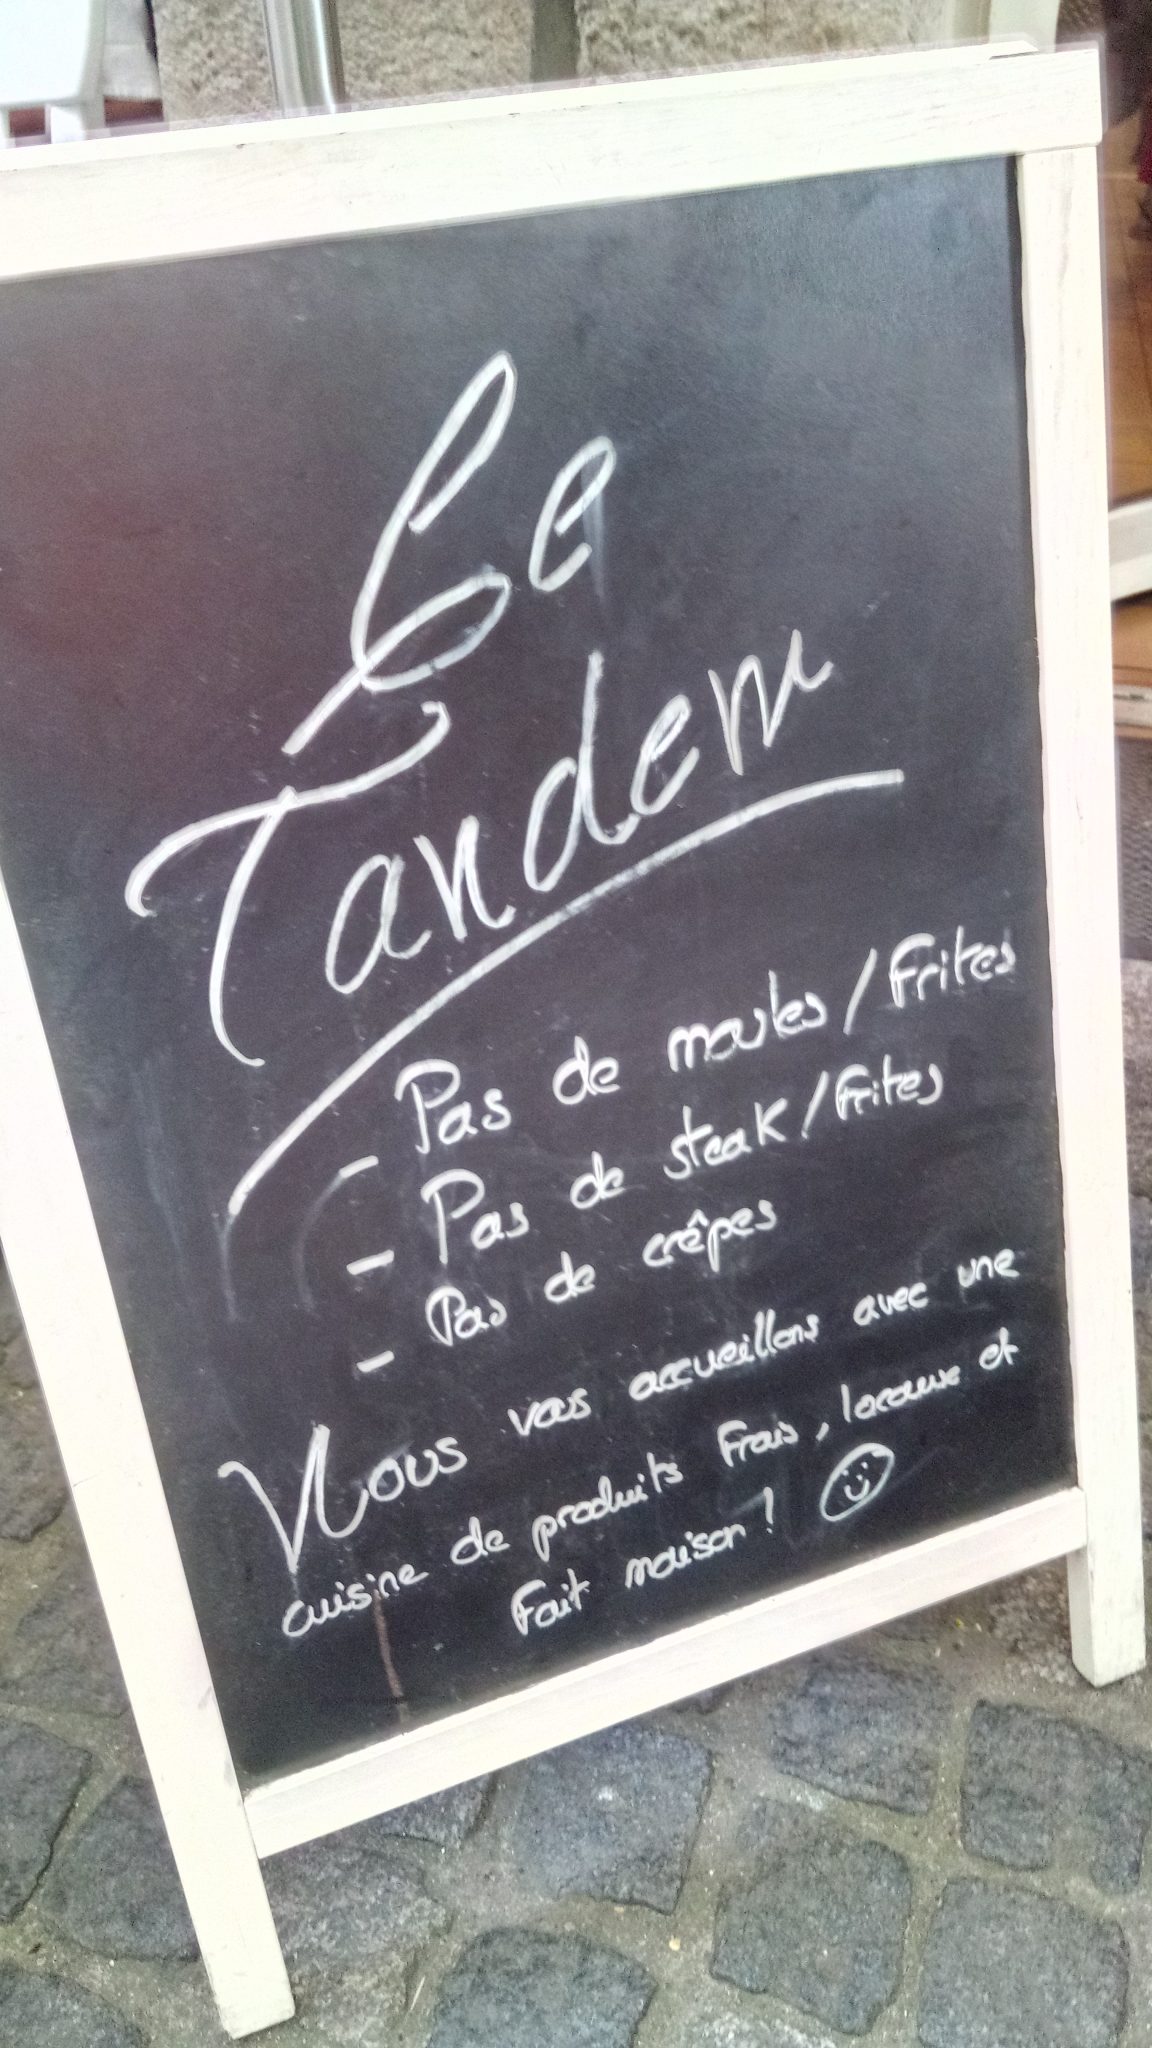 Le
Tandem
- Pas de moules / Frites
- Pas de steak / Frites
- Pas de crêpes
Nous vous accueillons avec une
cuisine de produits Frais, locaux et
Fait maison !